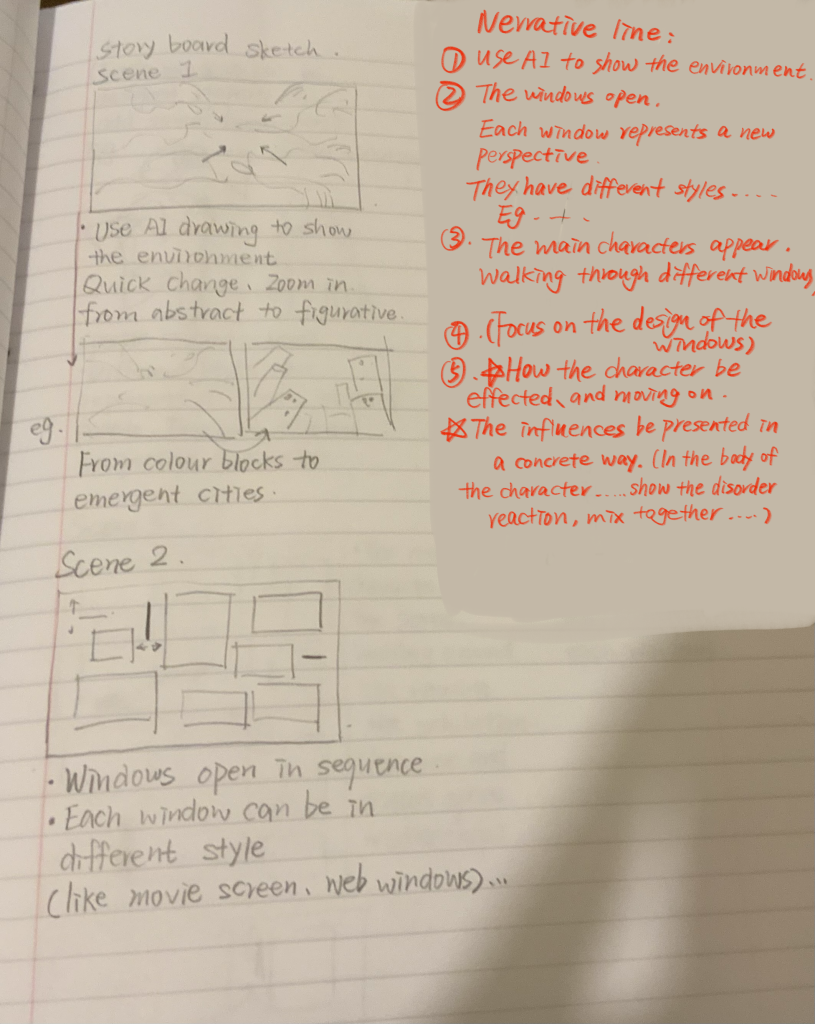 story board sketch.
scene 1
• Use AI drawing to show
the environment
Quick change、Zoom in.
from abstract to figurative.
eg.
From colour blocks to
emergent cities.
Scene 2.
• Windows open in sequence.
• Each window can be in
different style
(like movie screen、web windows)...
Nerrative line:
① Use AI to show the environment.
② The windows open.
Each window represents a new
perspective.
They have different styles.....
Eg. - + -
③. The main characters appear.
Walking through different windows,
④. (Focus on the design of the
windows)
⑤. ☆How the character be
effected、and moving on.
☆ The influences be presented in
a concrete way. (In the body of
the character..... show the disorder
reaction, mix together ....)